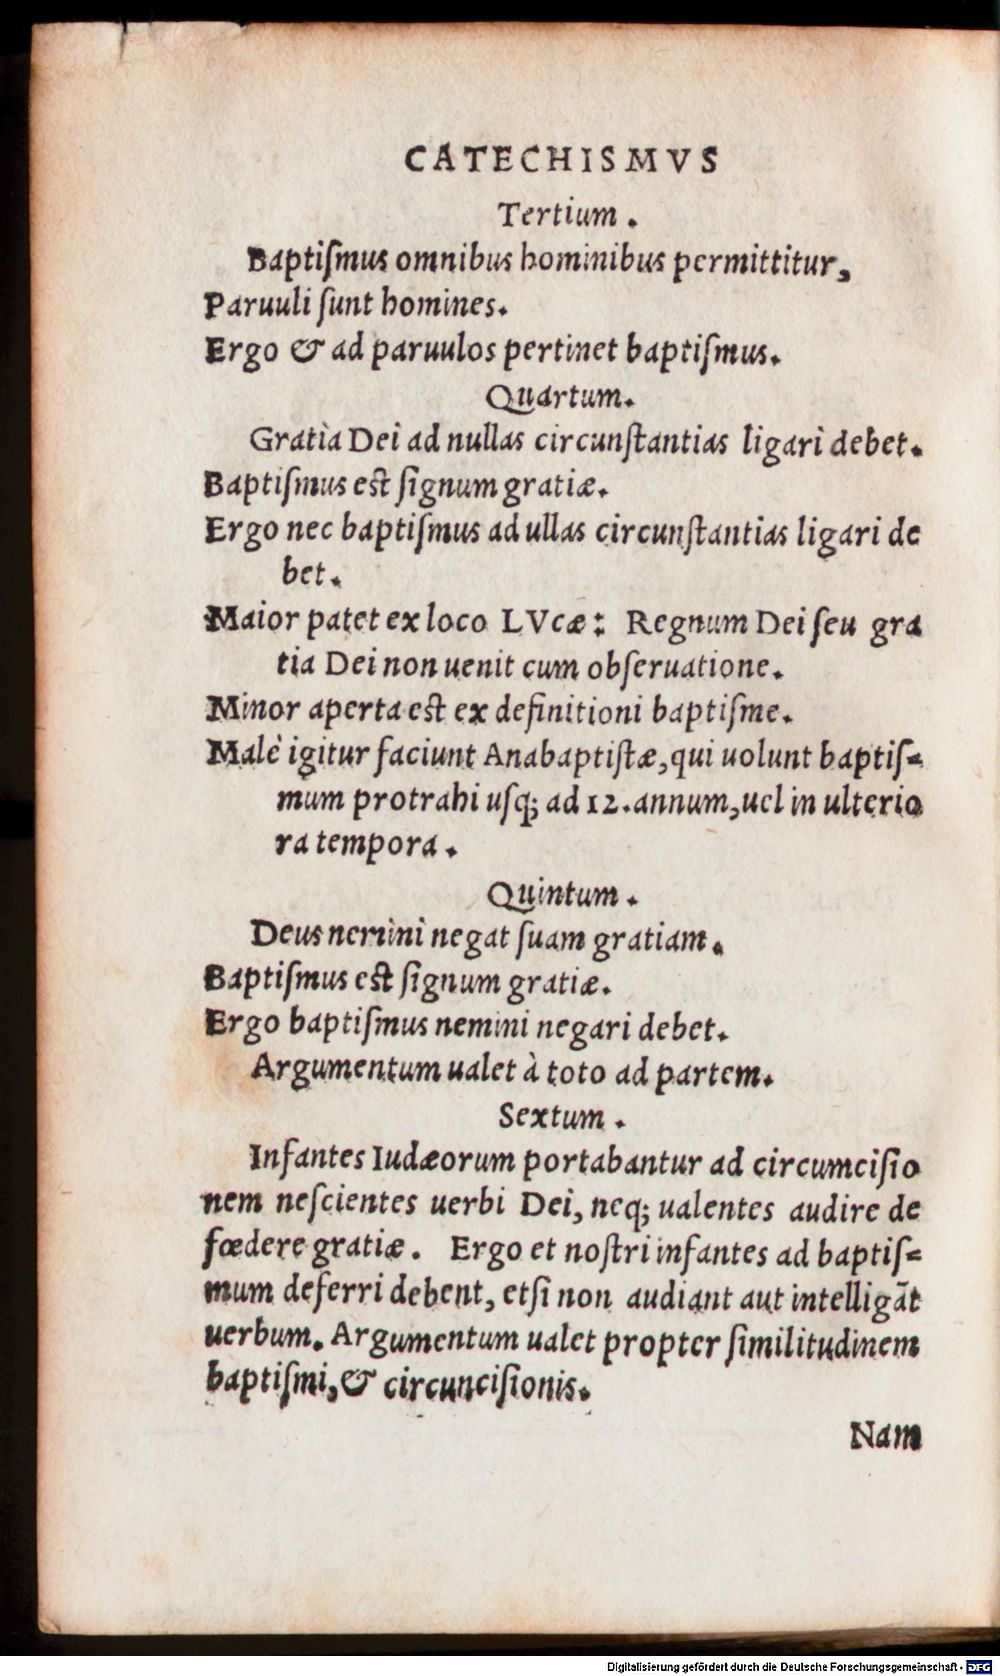 CATECHISMVS
Tertium.
Baptiſmus omnibus hominibus permittitur,
Paruuli ſunt homines.
Ergo & ad paruulos pertinet baptiſmus.
Quartum.
Gratia Dei ad nullas circunſtantias ligari debet.
Baptiſmus est ſignum gratiæ.
Ergo nec baptiſmus ad ullas circunſtantias ligari de
bet.
Maior patet ex loco LVcæ: Regnum Dei ſeu gra
tia Dei non uenit cum obſeruatione.
Minor aperta est ex definitioni baptiſme.
Malè igitur faciunt Anabaptiſtæ, qui uolunt baptiſ=
mum protrahi uſq; ad 12. annum, uel in ulterio
ra tempora.
Quintum.
Deus nemini negat ſuam gratiam.
Baptiſmus est ſignum gratiæ.
Ergo baptiſmus nemini negari debet.
Argumentum ualet à toto ad partem.
Sextum.
Infantes Iudæorum portabantur ad circumciſio
nem neſcientes uerbi Dei, neq; ualentes audire de
fœdere gratiæ. Ergo et noſtri infantes ad baptiſ=
mum deferri debent, etſi non audiant aut intelligāt
uerbum. Argumentum ualet propter ſimilitudinem
baptiſmi, & circunciſionis.
Nam
Digitalisierung gefördert durch die Deutsche Forschungsgemeinschaft - DFG